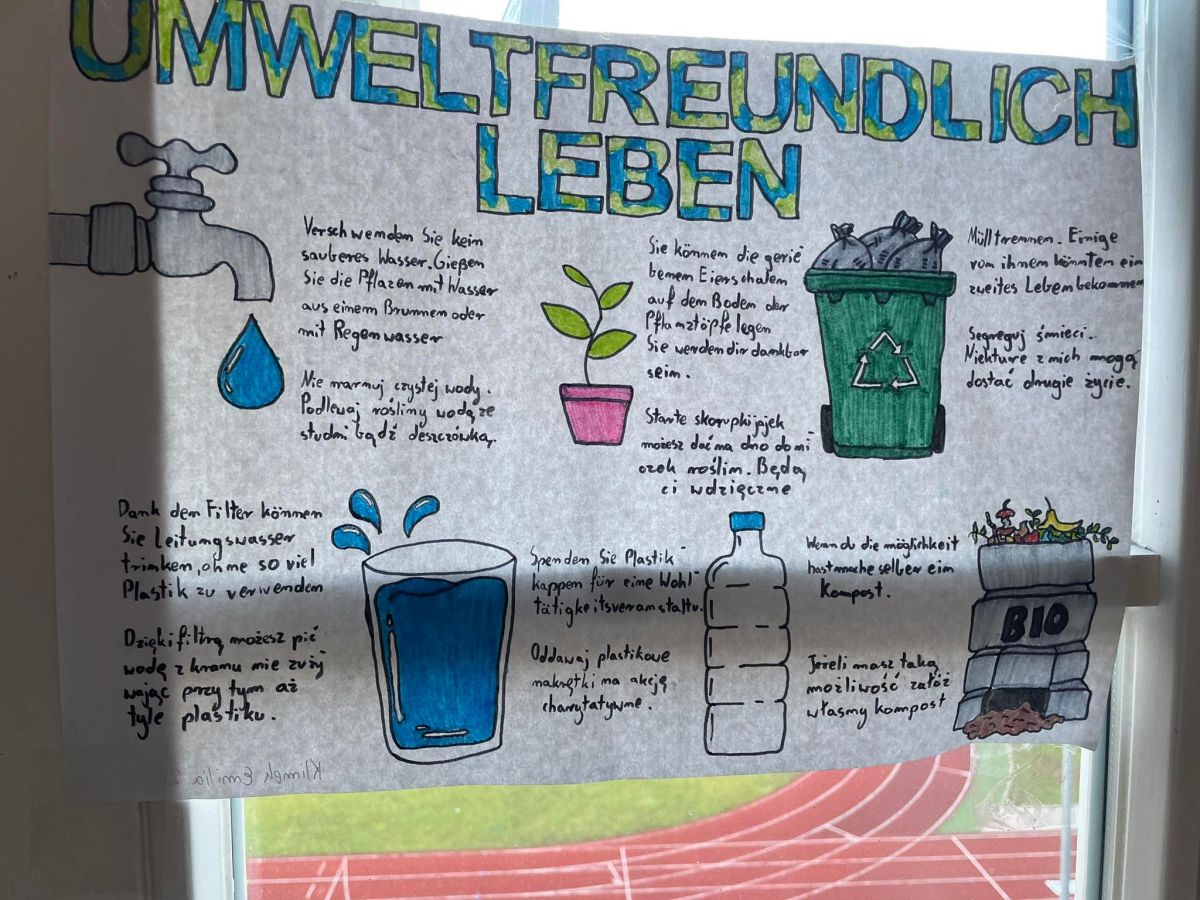 UMWELTFREUNDLICH
LEBEN
Verschwenden Sie kein
sauberes Wasser. Gießen
Sie die Pflazen mit Wasser
aus einem Brunnen oder
mit Regenwasser
Nie marnuj czystej wody.
Podlewaj rośliny wodą ze
studni bądź deszczówką.
Sie können die gerie
benen Eierschalen
auf dem Boden der
Pflanztöpfe legen
Sie werden dir dankbar
sein.
Starte skorupki jajek
możesz dać na dno doni
czek roślin. Będą
ci wdzięczne
Müll trennen. Einige
von ihnen könnten ein
zweites Leben bekommen
Segreguj śmieci.
Niekture z nich mogą
dostać drugie życie.
Dank dem Filter können
Sie Leitungswasser
trinken, ohne so viel
Plastik zu verwenden
Dzięki filtrą możesz pić
wodę z kranu nie zuży
wając przy tym aż
tyle plastiku.
Spenden Sie Plastik-
kappen für eine Wohl-
tätigkeitsveranstaltu.
Oddawaj plastikowe
nakrętki na akcję
charytatywne.
Wenn du die möglichkeit
hast mache selber ein
Kompost.
Jeżeli masz taką
możliwość załóż
własny kompost
BIO
Klimek Emilia